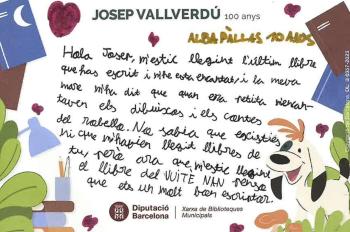 JOSEP VALLVERDÚ 100 anys
ALBA PALLÀS 10 ANYS
Hola Josep, m'estic llegint l'últim llibre
que has escrit i m'he esta encantat, i la meva
mare m'ha dit que quan era petita m'encan-
taven els dibuixos i els contes
del Rabella. No sabia que existies
ni que m'havien llegit llibres de
tu però ara que m'estic llegint
el llibre del VUITÈ NAN penso
que ets un molt bon escriptor.
Diputació Barcelona
Xarxa de Biblioteques
Municipals